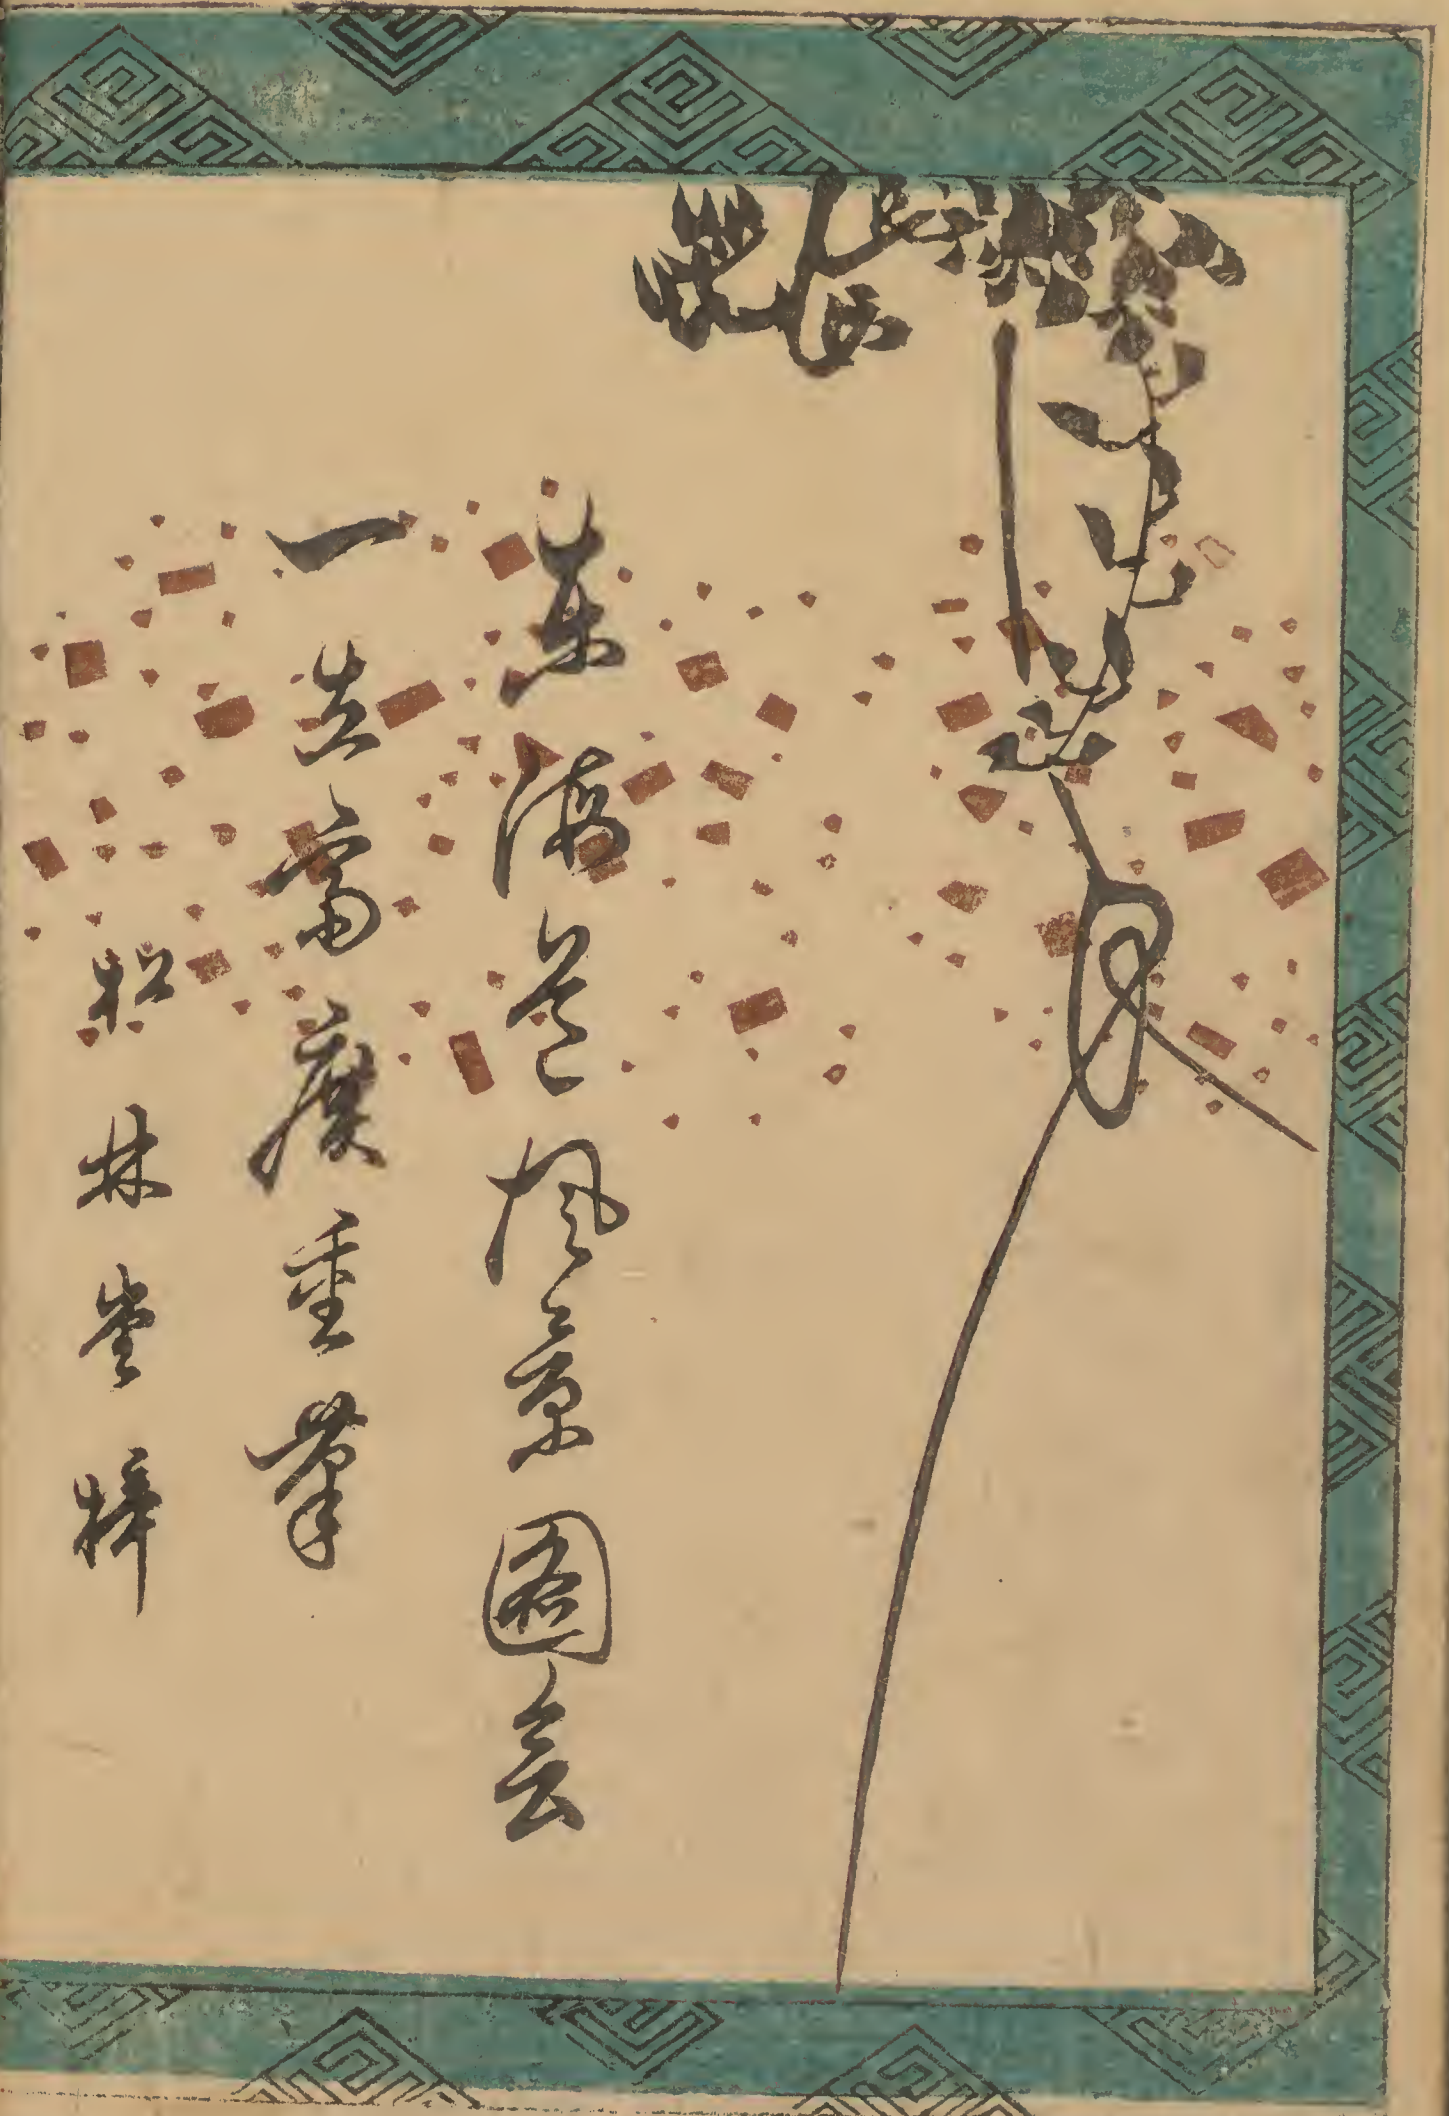 東海道風景図会
一立斎廣重筆
松林堂梓